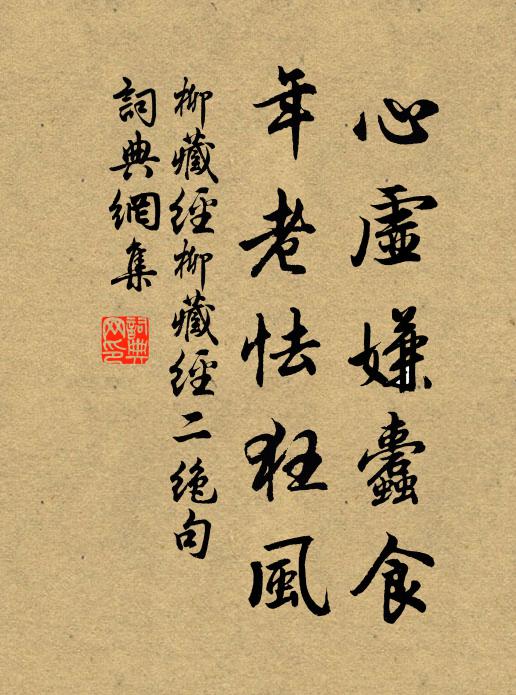 心虛嫌蠹食
年老怯狂風
柳藏經柳藏經二絶句
詞典網集
詞典網印